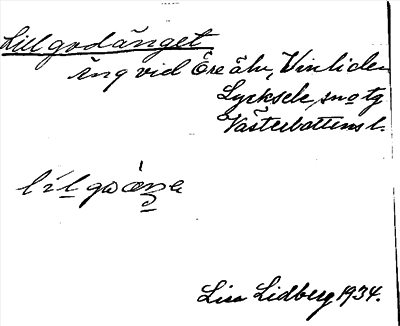 Lillgodänget
Äng vid Öre älv, Vinliden
Lycksele sn o tg
Västerbottens l.
Lisa Lidberg 1934.